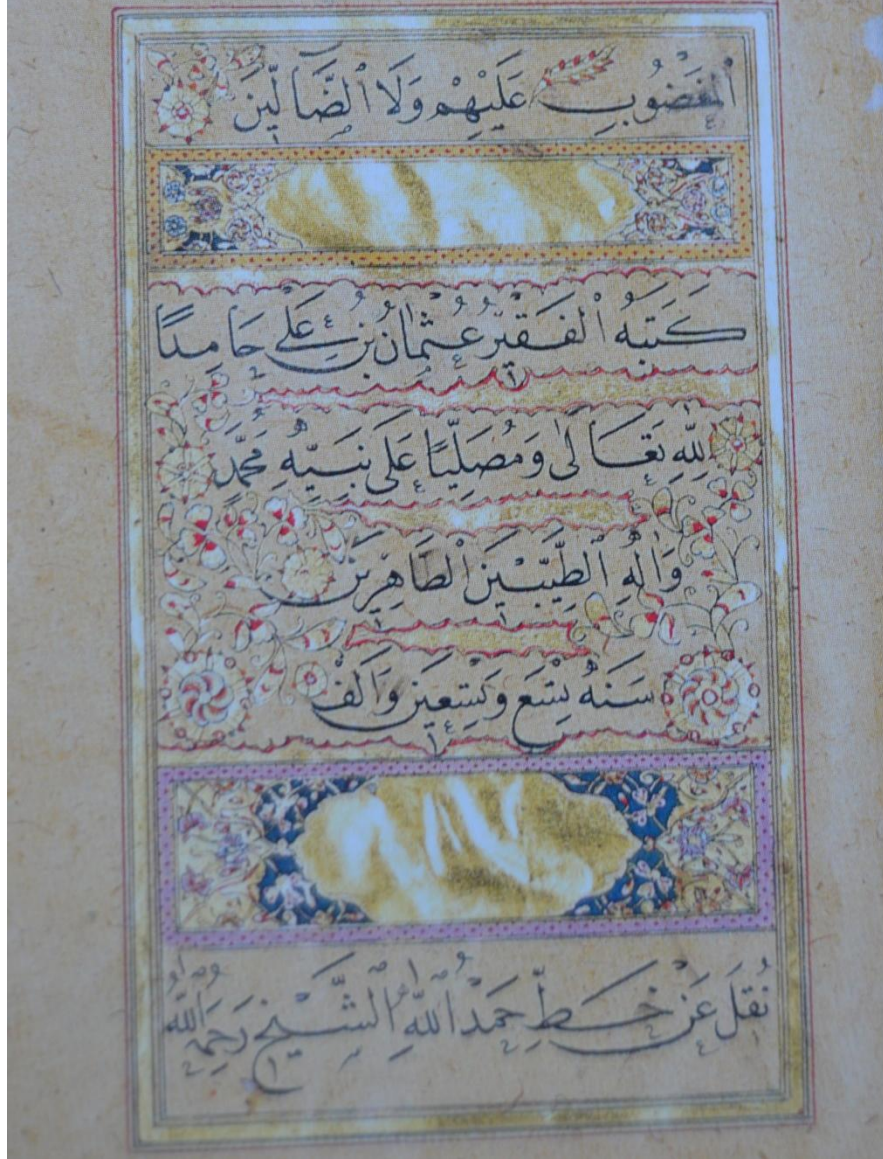 ٱلْمَغْضُوبِ عَلَيْهِمْ وَلَا ٱلضَّآلِّينَ
كَتَبَهُ ٱلْفَقِيرُ عُثْمَانُ بْنُ عَلِي حَامِدًا
لِلّٰهِ تَعَالٰى وَمُصَلِّيًا عَلٰى نَبِيِّهِ مُحَمَّدٍ
وَاٰلِهِ ٱلطَّيِّبِينَ ٱلطَّاهِرِينَ
سَنَهُ تِسْعَ وَتِسْعِينَ وَاَلْفْ
نُقِلَ عَنْ خَطِّ حَمْدُ ٱللّٰهِ ٱلشَّيْخِ رَحِمَهُ ٱللّٰهُ